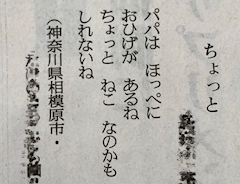 ちょっと
パパは ほっぺに
おひげが あるね
ちょっと ねこ なのかも
しれないね
（神奈川県相模原市・